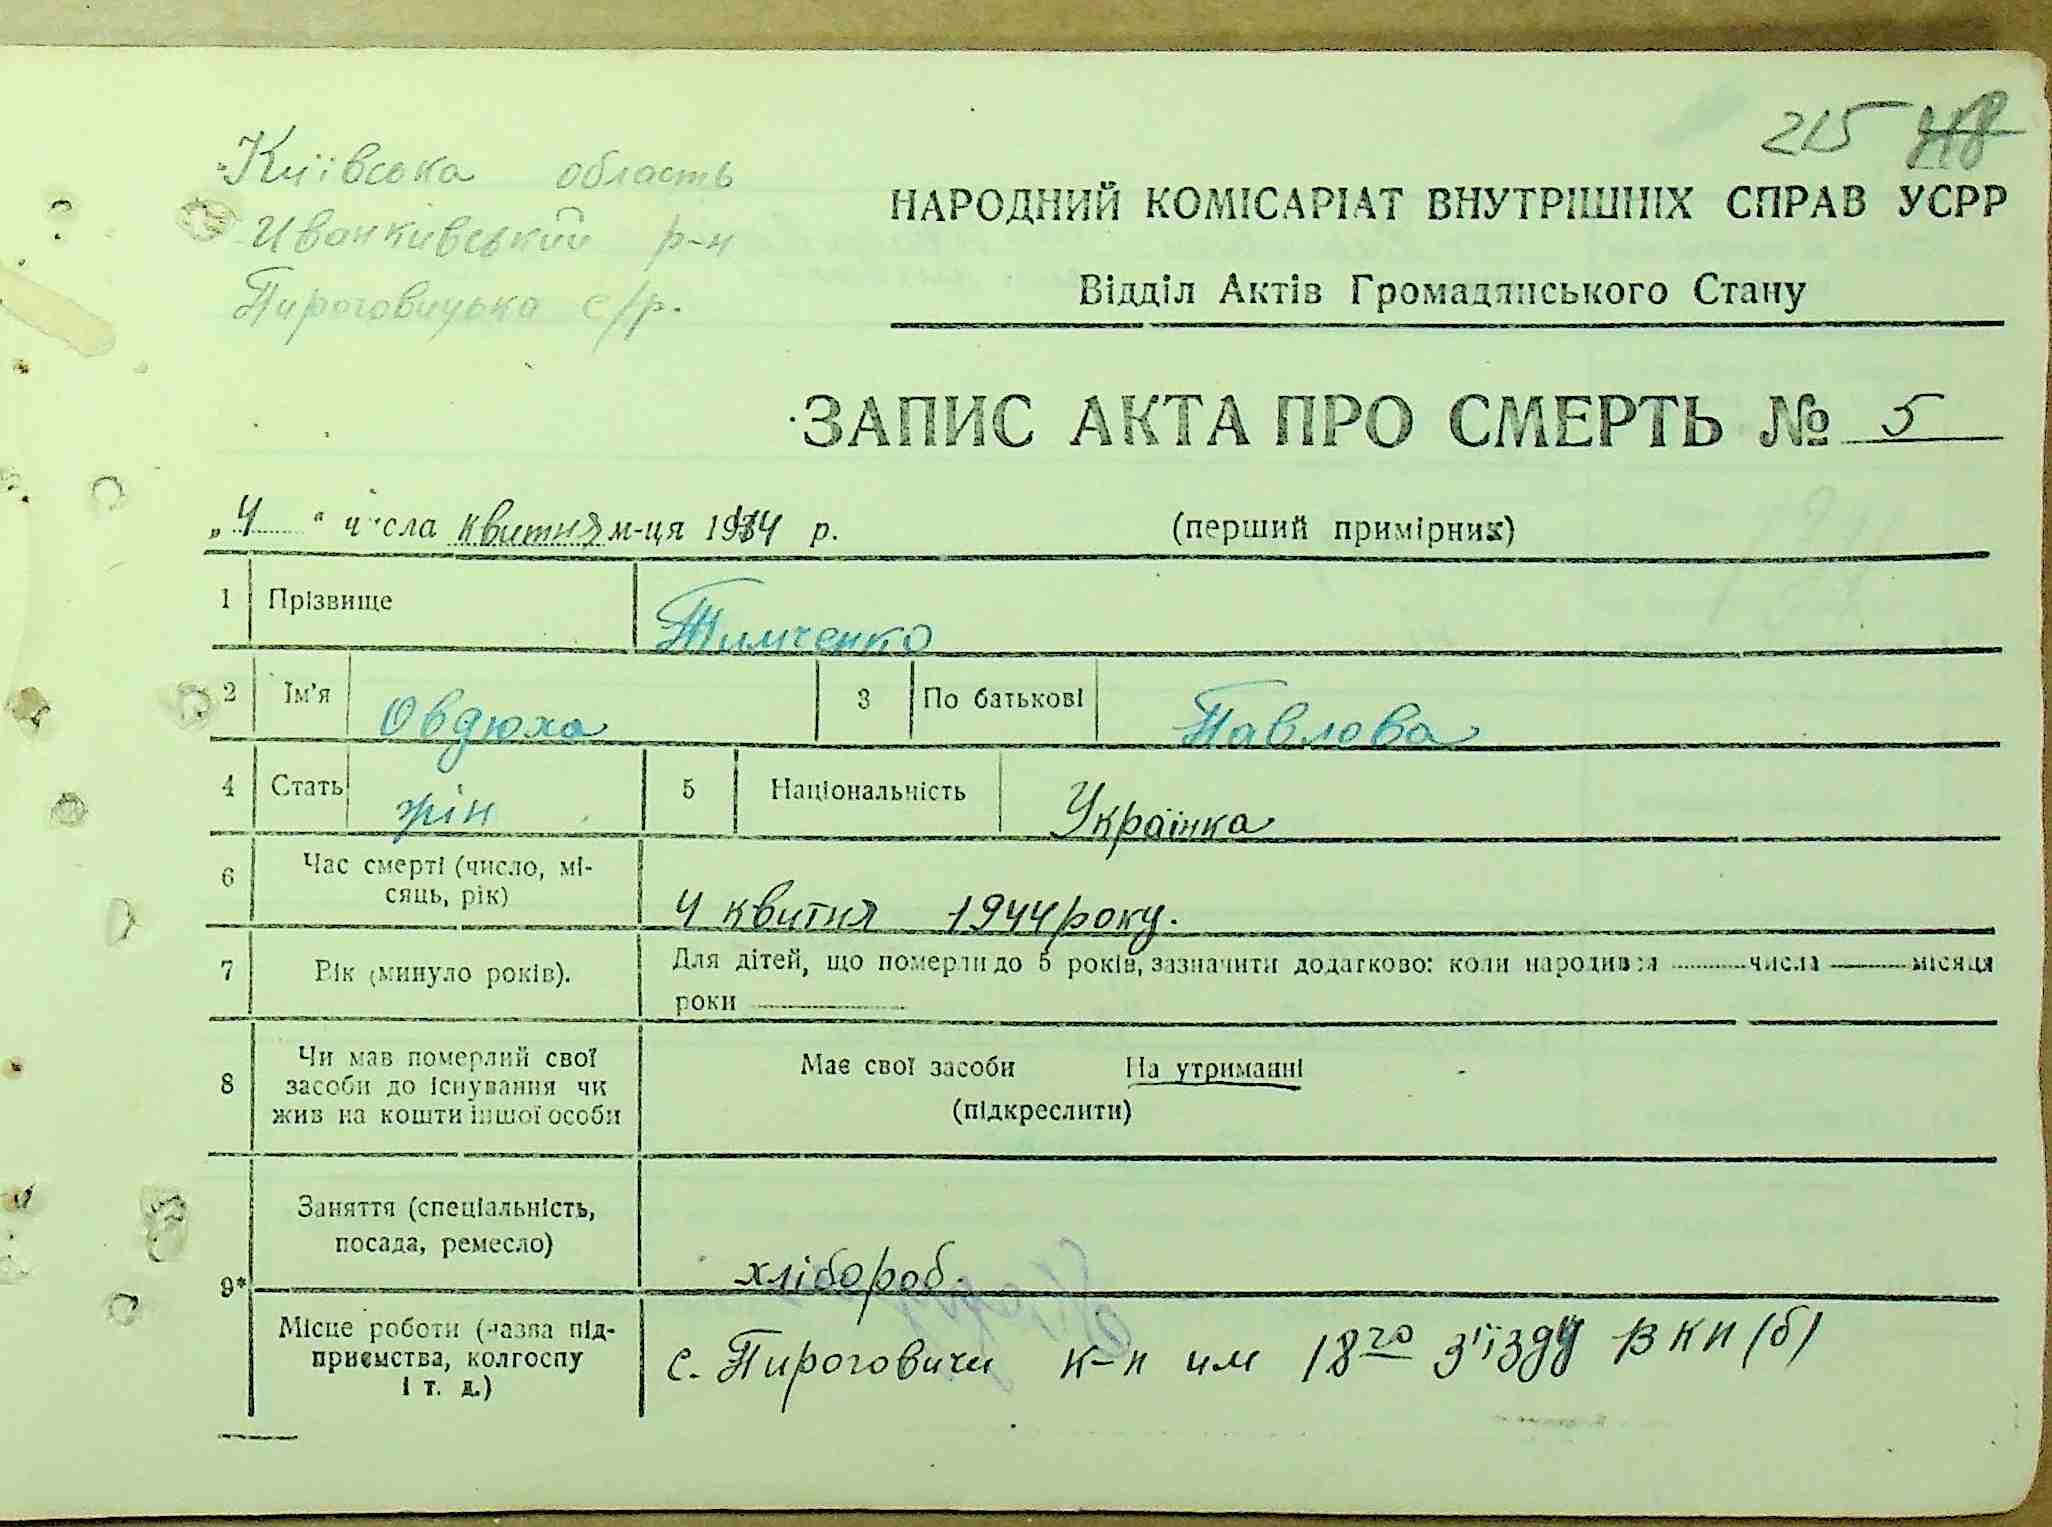 215 218
Київська область
Иванківський р-н
Пироговицька с/р.
НАРОДНИЙ КОМІСАРІАТ ВНУТРІШНІХ СПРАВ УСРР
Відділ Актів Громадянського Стану
ЗАПИС АКТА ПРО СМЕРТЬ № 5
„ 4 “ числа квитня м-ця 1944 р. (перший примірник)
1 Прізвище Тимченко
2 Ім'я Овдюха 3 По батькові Павлова
4 Стать жін 5 Національність Українка
6 Час смерті (число, мі-
сяць, рік) 4 квитня 1944 року.
7 Вік (минуло років). Для дітей, що померли до 5 років, зазначити додатково: коли народився числа місяця
роки
8 Чи мав померлий свої
засоби до існування чи
жив на кошти іншої особи
Має свої засоби На утриманні
(підкреслити)
9* Заняття (спеціальність,
посада, ремесло) хлібороб.
Місце роботи (назва під-
приємства, колгоспу
і т. д.) с. Пироговичи к-п им 18го з'їзду ВКП(б)